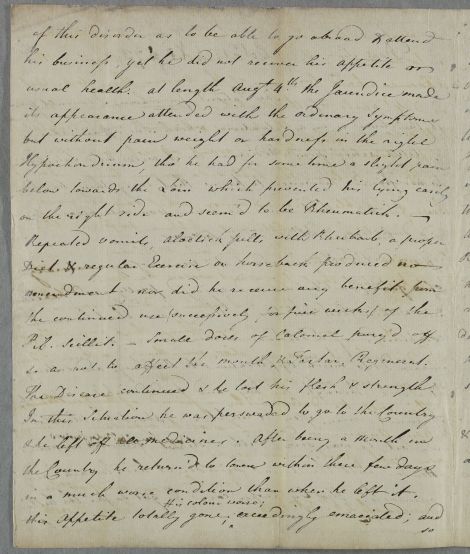 of this disorder as to be able to go abroad & attend
his business, yet he did not recover his appetite or
usual health. at length Augt. 4th the Jaundice made
its appearance attended with the ordinary Symptoms
but without pain weight or hardness in the right
Hypochondrium tho' he had for some time a slight pain
below towards the Loin which prevented his lying easily
on the right side and seem'd to be Rheumatick. —
Repeated vomits, aloetick pills with Rhubarb, a proper
Diet & regular Exercise on horseback produced no
amendment nor did he receive any benefit from
the continued use successively for five weeks of the
Pil. scillit. – Small doses of Calomel purg'd off
so as not to affect the mouth, & Tartar. Regenerat.
The Disease continued & he lost his flesh & strength
In this Situation he was perswaded to go to the Country
& he left off medicines. After being a month in
the Country he return'd to town within these few days
in a much worse condition than when he left it.
His colour worse;
His Appetite totally gone, exceedingly emaciated; and
so